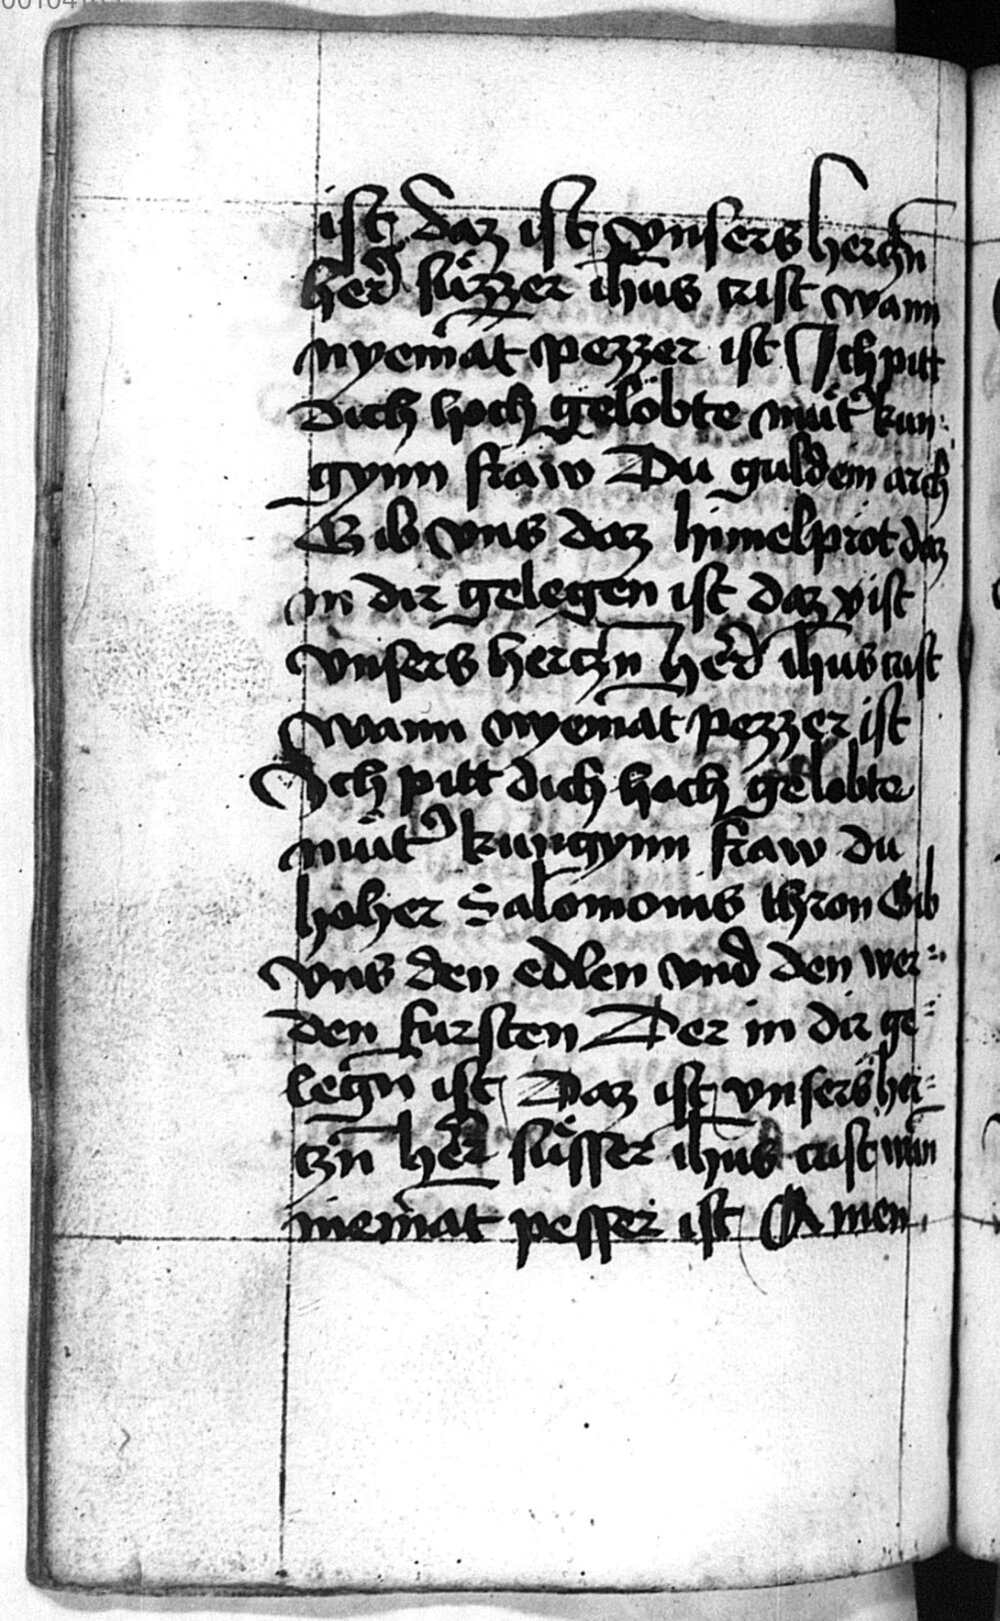 ist daz ist vnsers herczn̄
her̄d sůzzer ih̄us crist wann
nyem̄at pezzer ist Ich pitt
dich hoch gelobte můt᾽ kun⸗
gynn fraw Du guldein arch
Gib vns daz himelprot daz
in dir gelegen ist daz ist
vnsers herczn̄ her̄d ih̄us crist
wann nyemat pezzer ist
Ich pitt dich hoch gelobte
můt᾽ kungynn fraw du
hoher Salomonis thron Gib
vns den edlen vnd den wer⸗
den fursten Der in dir ge⸗
legn̄ ist Daz ist vnsers her⸗
czn̄ her̄ sůsser ih̄us crist wan̄
niem̄at pesser ist Amen